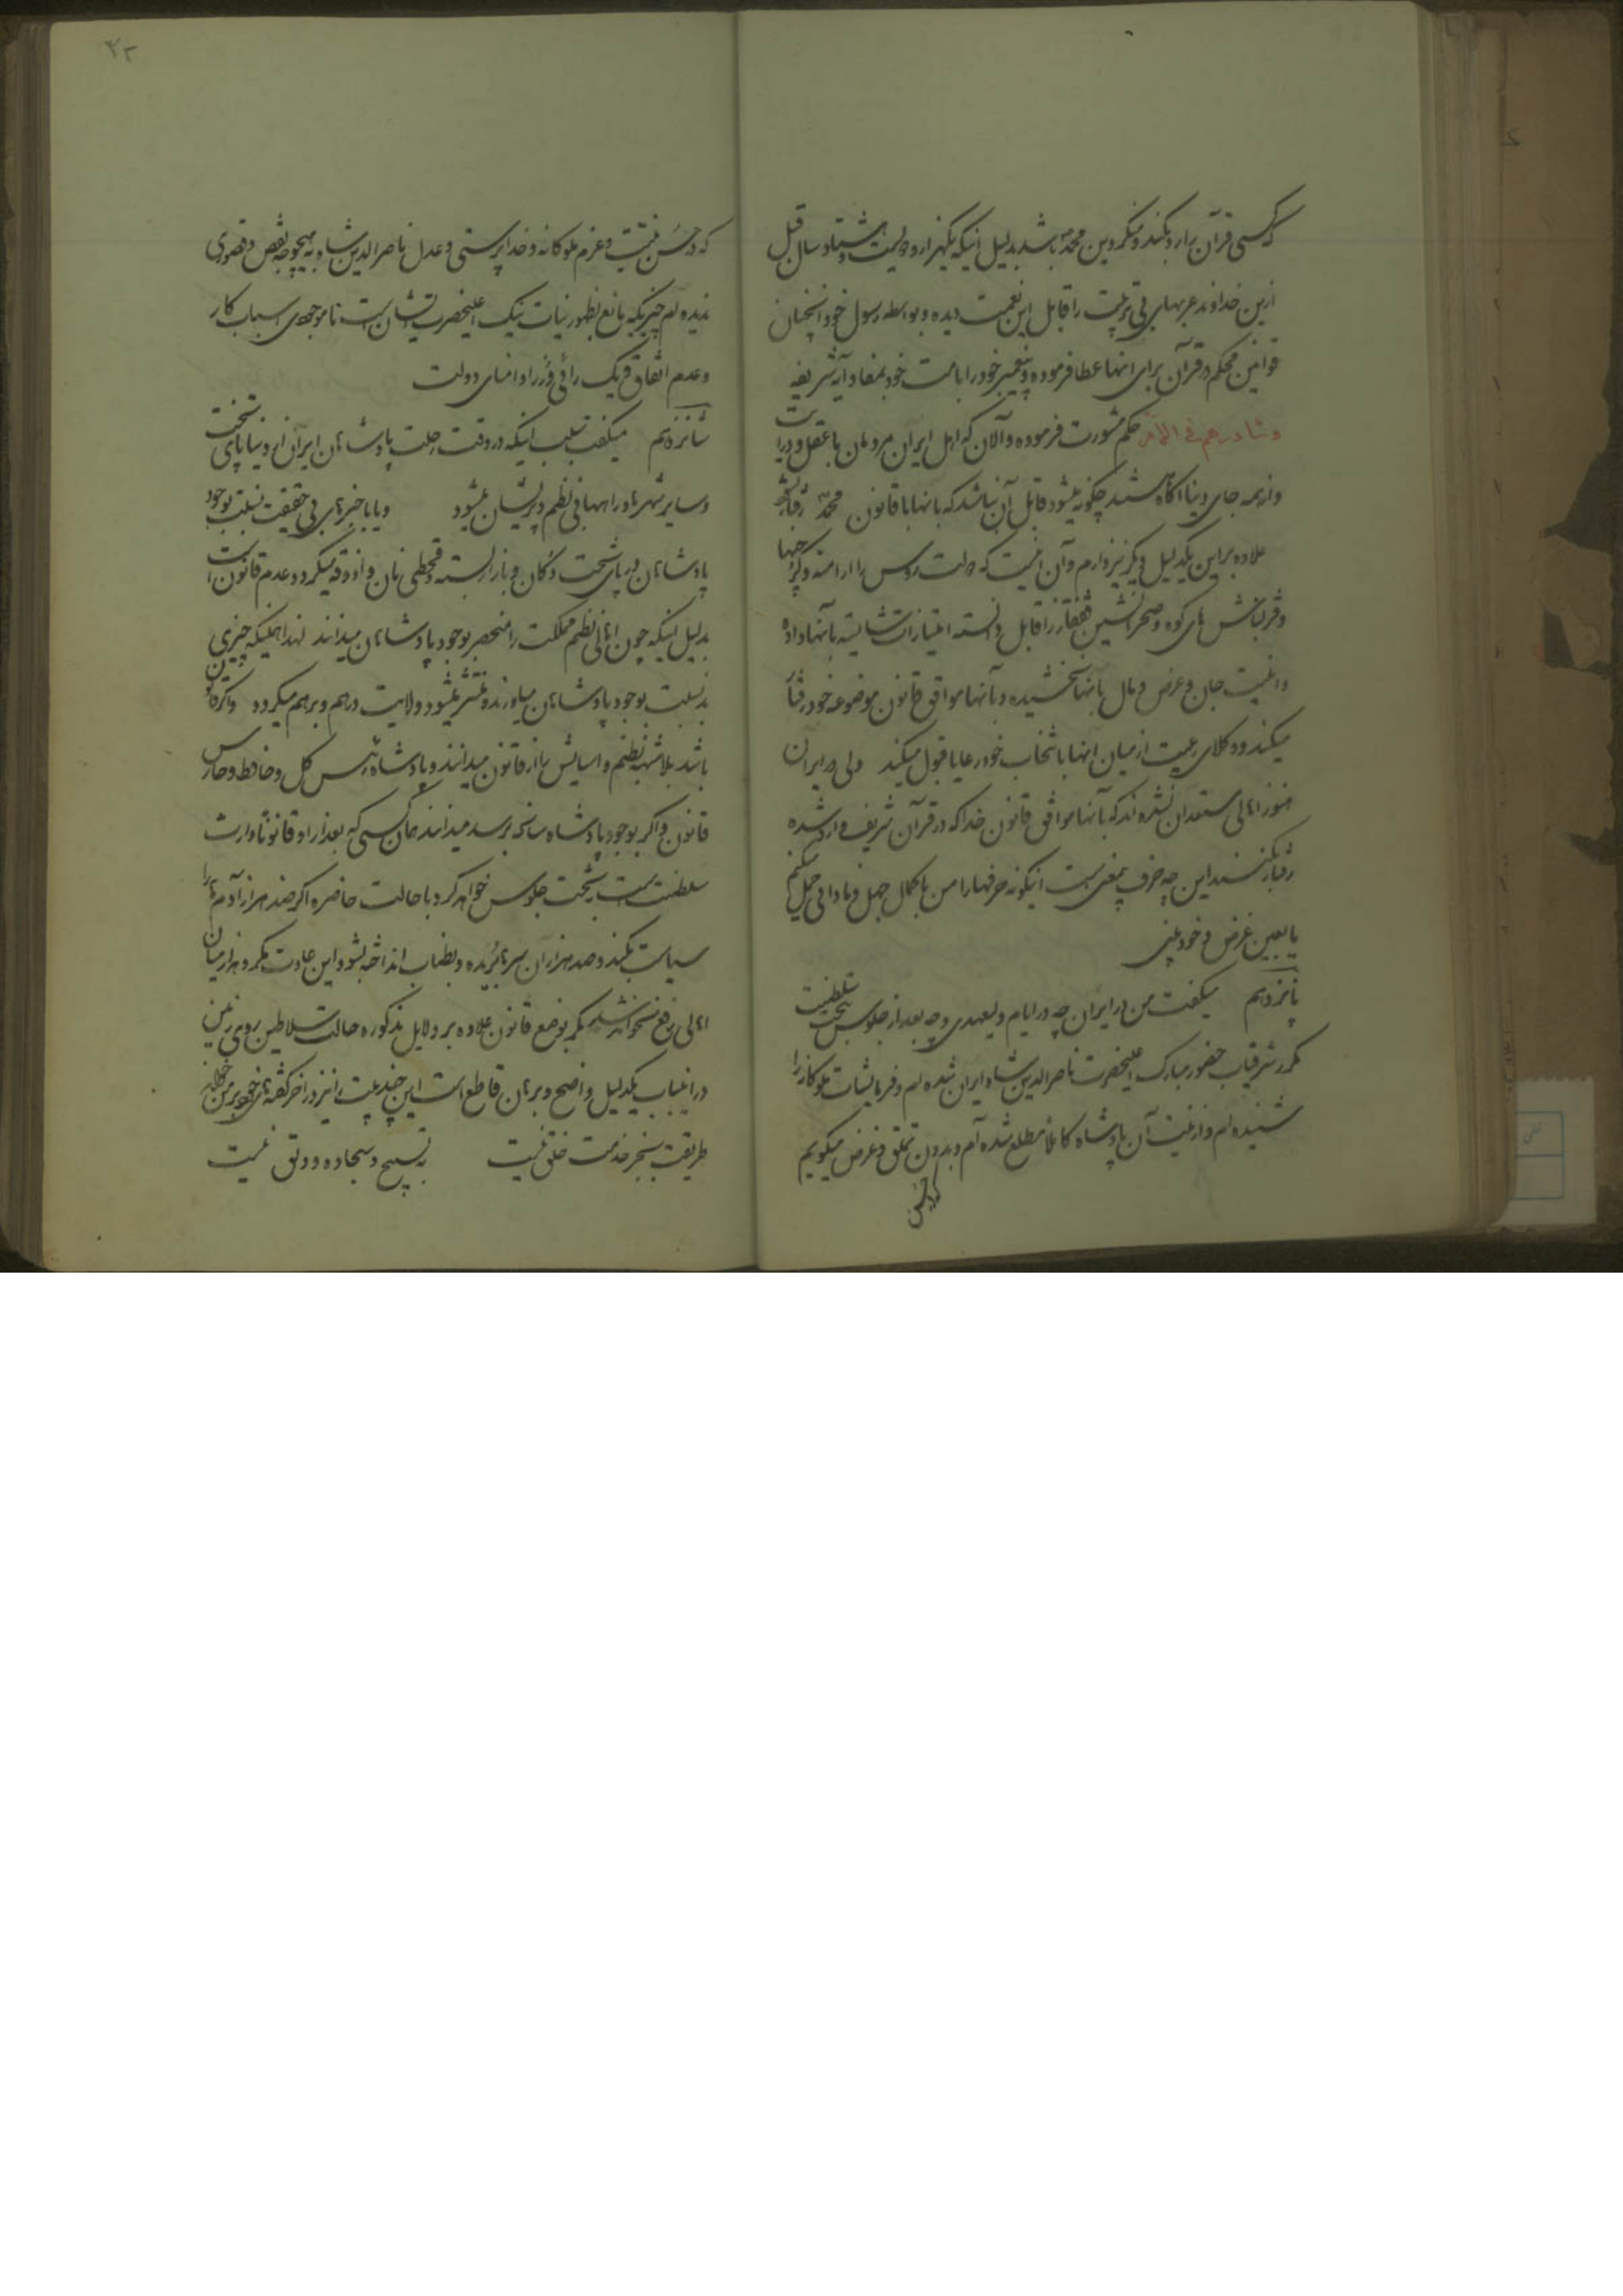 که کسی قرآن را رد بکند و منکر دین محمد باشد بدلیل اینکه یکهزار و دویست و هشتاد سال قبل
ازین خداوند عربهای بی تربیت را قابل این نعمت دیده و بواسطه رسول خود آنچنان
قوانین محکم در قرآن برای آنها عطا فرموده و پیغمبر خود را با امت خود بمفاد آیه شریفه
و شاورهم فی الامر حکم مشورت فرموده و الان که اهل ایران مردمان با عقل و درایت
و از همه جای دنیا آگاه هستند چگونه میشود قابل آن نباشند که با آنها با قانون محمد رفتار شود
علاوه براین یکدلیل دیگر نیز دارم و آن اینست که دولت روس ارامنه و گرجیها
و کوه و صحرانشین قفقاز را قابل دانسته امتیازات شایسته بآنها داده
و امنیت جان و عرض و مال بآنها بخشیده و بآنها موافق قانون موضوعه خود رفتار
میکند و وکلای رعیت از میان آنها با انتخاب خود رعایا قبول میکند ولی در ایران
هنوز اهالی مستعد آن نشده اند که بآنها موافق قانون خدا که در قرآن شریف وارد شده
رفتار بکنند این چه حرف بیمعنی است اینگونه حرفها را من با کمال جهل و نادانی حمل میکنم
یا بعین غرض و خودبینی
پانزدهم میگفت من در ایران چه در ایام ولیعهدی و چه بعد از جلوس بتخت سلطنت
مکرر شرفیاب حضور مبارک اعلیحضرت ناصرالدین شاه ایران شده ام و فرمایشات ملوکانه را
شنیده ام و از نیت آن پادشاه کاملا مطلع شده ام و بدون تملق و غرض میگویم
که در حسن
که در حسن نیت و عزم ملوکانه و خداپرستی و عدل ناصرالدین شاه به هیچوجه نقص و قصوری
ندیده ام چیزیکه مانع بظهور نیات نیک اعلیحضرت ایشان است ناموجودی اسباب کار
و عدم اتفاق و یک رائی وزرا و امنای دولت
شانزدهم میگفت بسبب اینکه در وقت رحلت پادشاهان ایران از دنیا پای تخت
و سایر شهرها و راهها بی نظم و پریشان میشود و یا با خبرهای بی حقیقت نسبت بوجود
پادشاهان در پای تخت دکان و بازار بسته و قحطی نان و آذوقه میگردد عدم قانون است
بدلیل اینکه چون اهالی نظم مملکت را منحصر بوجود پادشاهان میدانند لهذا همینکه چیزی
نسبت بوجود پادشاهان میاورند و منتشر میشود ولایت درهم و برهم میگردد و اگر قانون
باشد بلاشبهه نظم و آسایش را از قانون میدانند و پادشاه را رئیس کل و حافظ و حارس
قانون و اگر بوجود پادشاه سانحه برسد میدانند همان کسی که بعد از او قانونا وارث
سلطنت است بتخت جلوس خواهد کرد با حالت حاضره اگر صد هزار آدم ها را
سیاست بکنند و صد هزاران سر ها بریده و بطناب انداخته بشود این عادت مکروه از میان
اهالی رفع نخواهد شد مگر بوضع قانون علاوه بر دلایل مذکوره حالت سلاطین روی زمین
در اینباب یکدلیل واضح و برهان قاطع است این چند بیت را نیز در آخر گفته های خود بر من
طریقت بجز خدمت خلق نیست به تسبیح و سجاده و دلق نیست